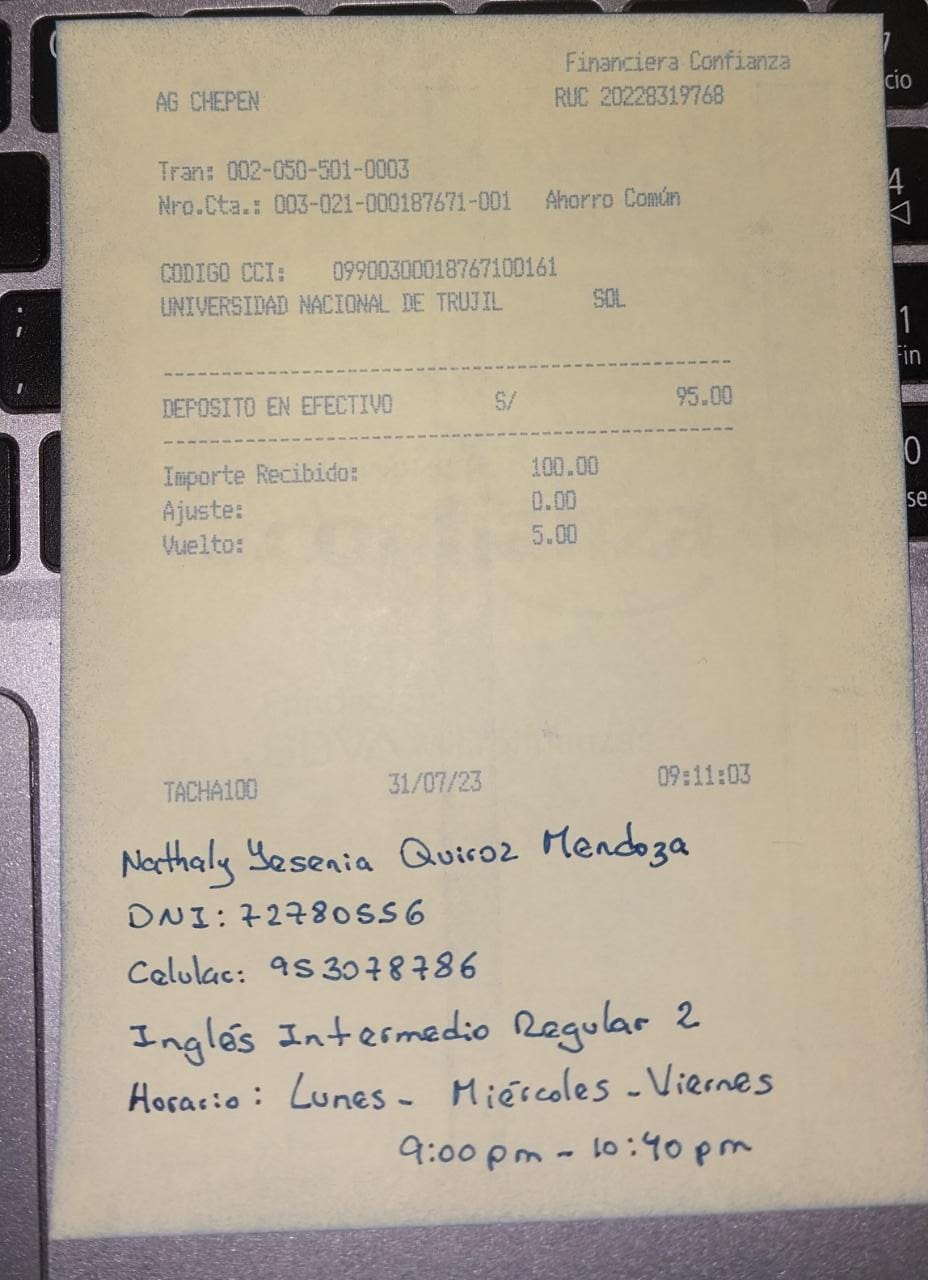 Financiera Confianza
AG CHEPEN RUC 20228319768
Tran: 002-050-501-0003
Nro.Cta.: 003-021-000187671-001 Ahorro Común
CODIGO CCI: 09900300018767100161
UNIVERSIDAD NACIONAL DE TRUJIL SOL
DEPOSITO EN EFECTIVO S/ 95.00
Importe Recibido: 100.00
Ajuste: 0.00
Vuelto: 5.00
TACHA100 31/07/23 09:11:03
Nathaly Yesenia Quiroz Mendoza
DNI: 72780556
Celular: 953078786
Inglés Intermedio Regular 2
Horario: Lunes - Miércoles - Viernes
9:00 pm - 10:40 pm